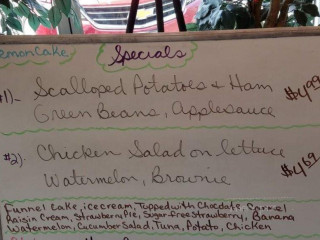 emonCake
Specials
#1)- Scalloped Potatoes & Ham
Green Beans, Applesauce
$4.99
#2). Chicken Salad on lettuce
Watermelon, Brownie
$4.69
Funnel Cake, icecream, Topped with Chocolate, Carmel
Raisin Cream, Strawberry Pie, Sugar-free Strawberry, Banana
Watermelon, Cucumber Salad, Tuna, Potato, Chicken